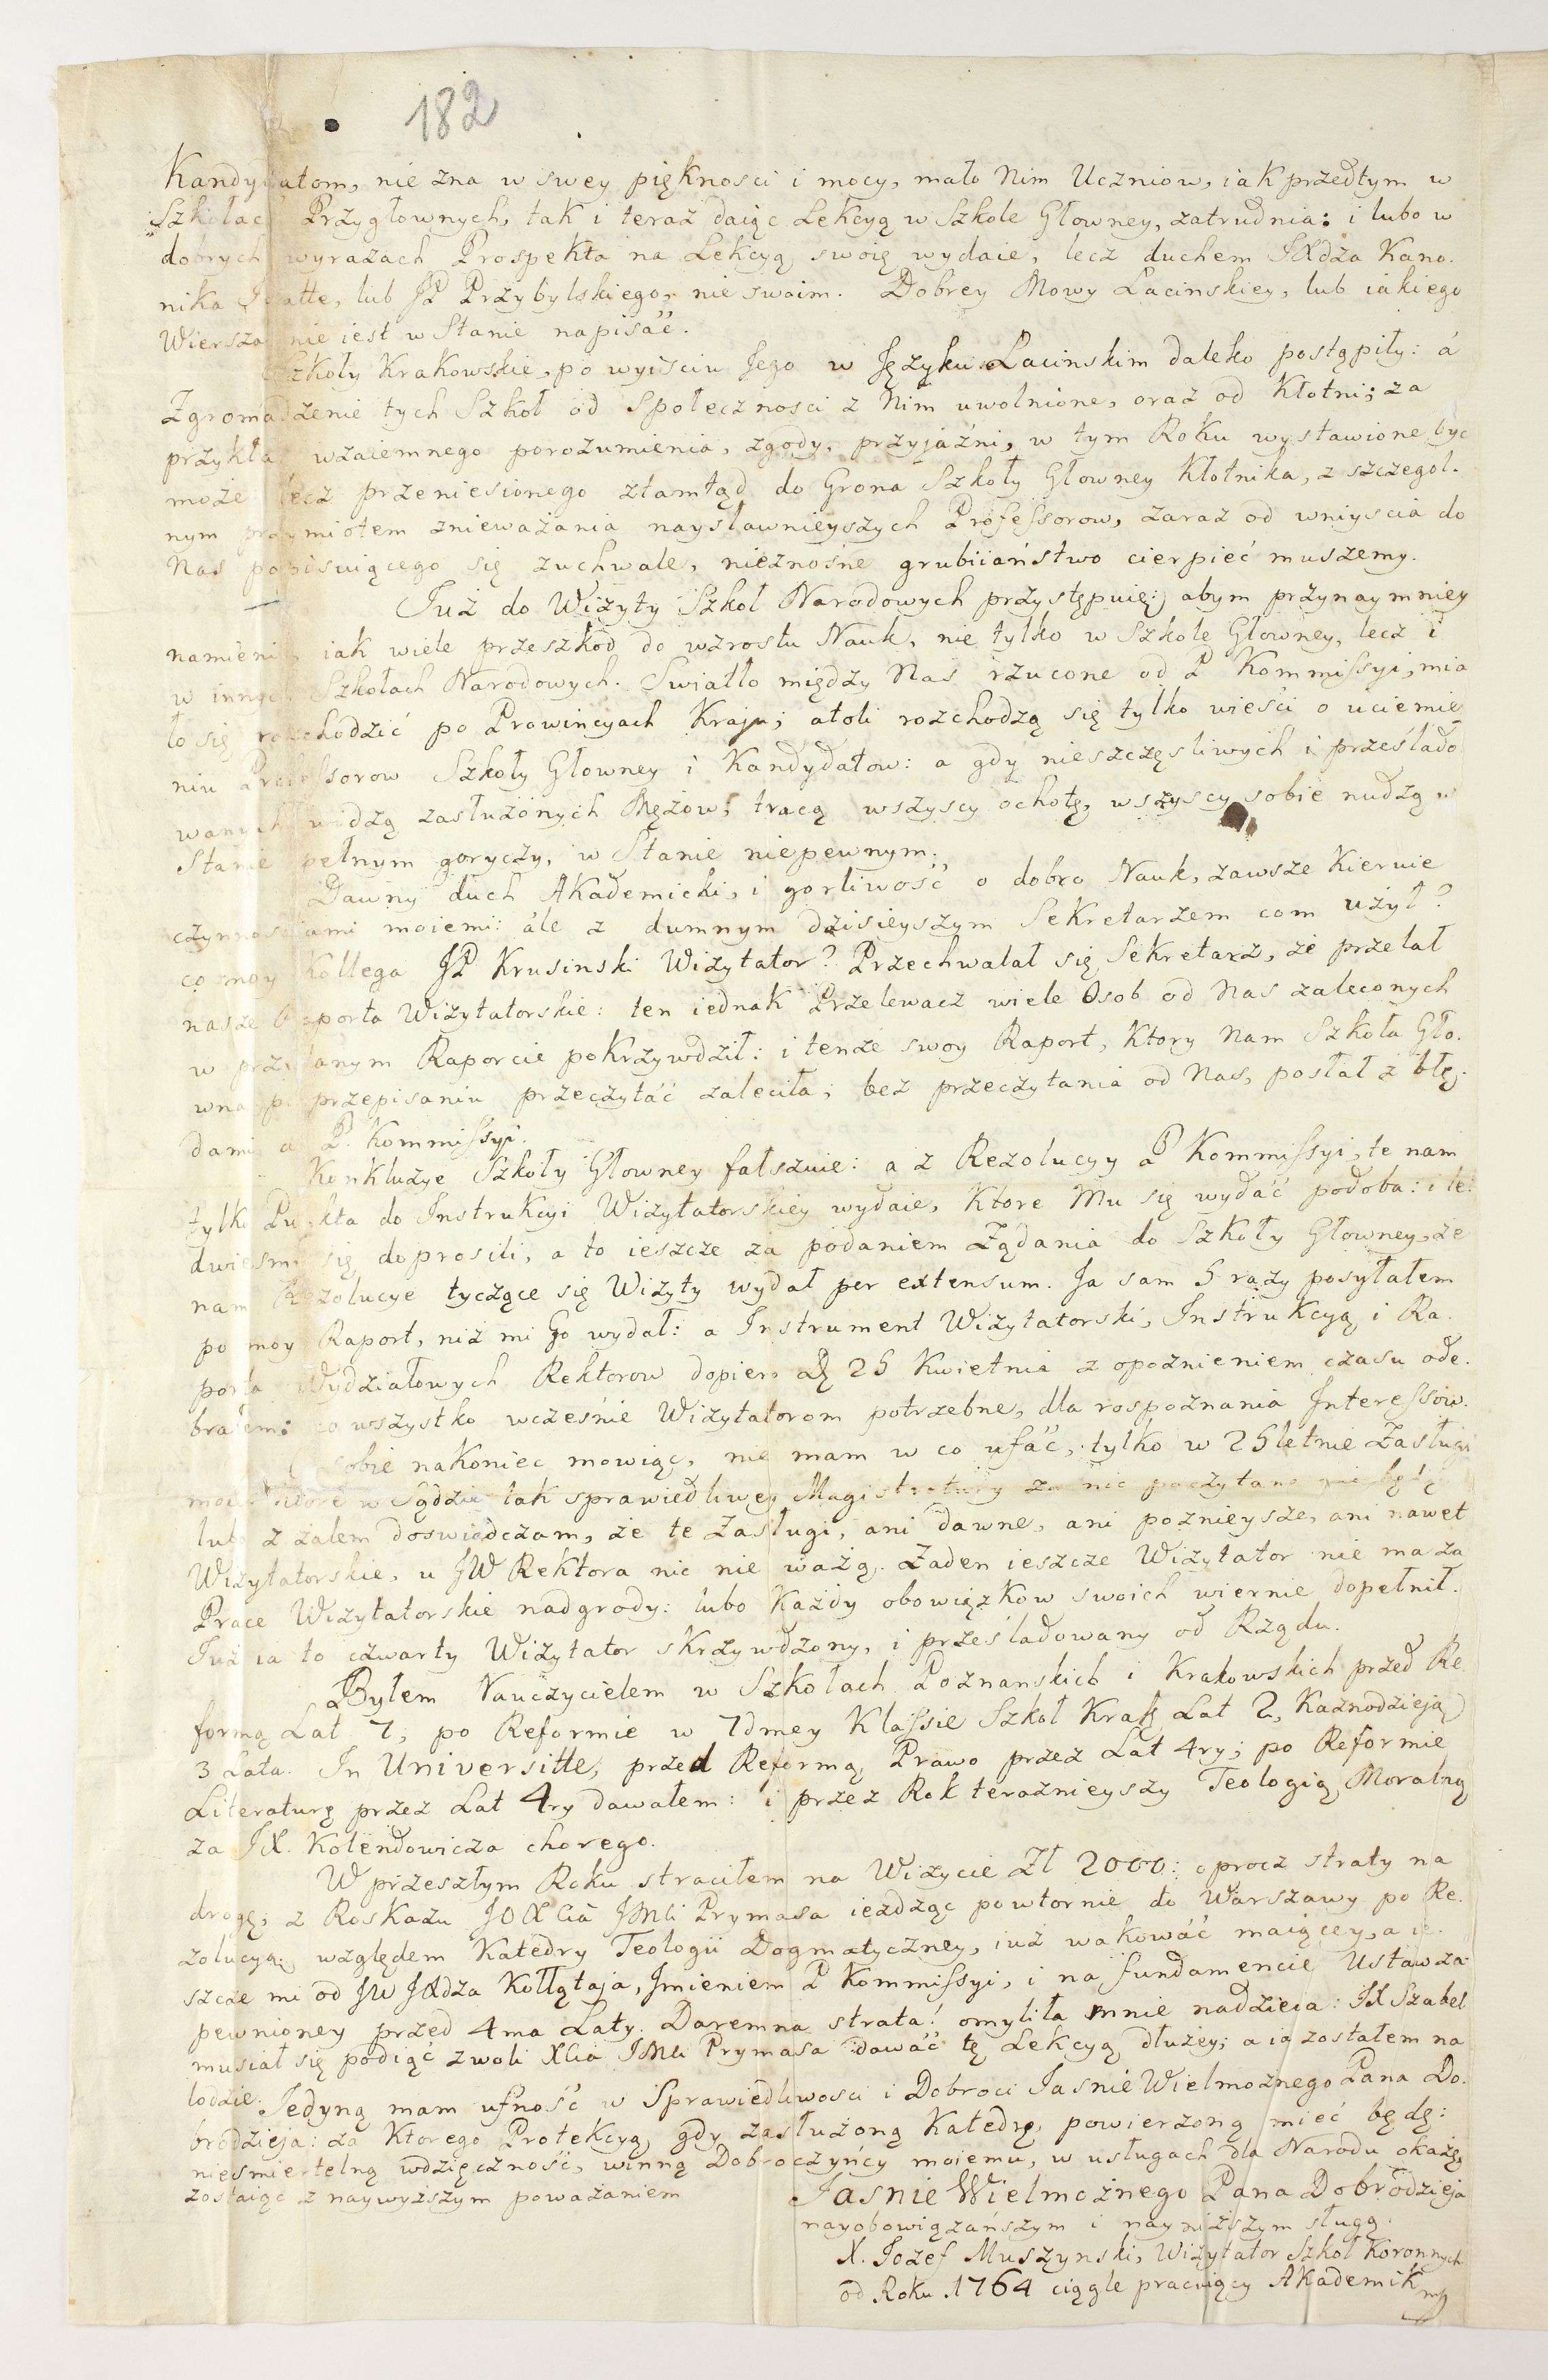 182
Kandydatom, nie zna w swey piękności i mocy, mało Nim Uczniow, iak przedtym w
Szkołach Przygłownych, tak i teraz daiąc Lekcyą w Szkole Głowney, zatrudnia: i lubo w
dobrych wyrazach Prospekta na Lekcyą swoię wydaie, lecz duchem JXdza Kano.
nika lub JP Przybylskiego, nie swoim. Dobrey Mowy Łacinskiey, lub iakiego
Wiersza nie iest w Stanie napisáć.
Szkoły Krakowskie, po wyiściu Jego w Języku Łacinskim daleko postąpiły: á
Zgromadzenie tych Szkoł od Społeczności z Nim uwolnione, oraz od Kłotni; za
przykład wzaiemnego porozumienia, zgody, przyjaźni, w tym Roku wystawione być
może lecz przeniesionego ztamtąd do Grona Szkoły Głowney Kłotnika, z szczegol.
nym przymiotem znieważania naysławnieyszych Professorow, zaraz od wniyścia do
Nas popisuiącego się zuchwale, nieznośne grubiiaństwo cierpieć muszemy.
Już do Wizyty Szkoł Narodowych przystępuię: abym przynaymniey
namienił, iak wiele przeszkod do wzrostu Nauk, nie tylko w Szkole Głowney, lecz i
w innych Szkołach Narodowych. Swiatło między Nas rzucone od P Kommissyi, mia
ło się rozchodzić po Prowincyach Kraju; atoli rozchodzą się tylko wieści o uciemię
niu Professorow Szkoły Głowney i Kandydatow: a gdy nieszczęśliwych i prześlado
wanych widzą zasłużonych Mężow; tracą wszyscy ochotę, wszyscy sobie nudzą w
Stanie pełnym goryczy, w Stanie niepewnym.
Dawny duch Akademicki, i gorliwość o dobro Nauk, zawsze Kieruie
czynnościami moiemi: ále z dumnym dzisieyszym Sekretarzem com użył?
co moy Kollega JP Krusinski Wizytator? Przechwalał się Sekretarz, że przelał
nasze Raporta Wizytatorskie: ten iednak Przelewacz wiele Osob od Nas zaleconych
w przelanym Raporcie pokrzywdził: i tenże swoy Raport, Ktory Nam Szkoła Gło.
wna po przepisaniu przeczytáć zaleciła; bez przeczytania od Nas, posłał z błę.
dami do P. Kommissyi.
Konkluzye Szkoły Głowney fałszuie: a z Rezolucyy P Kommissyi, te nam
tylko Punkta do Instrukcyi Wizytatorskiey wydaie, Ktore Mu się wydáć podoba: i le.
dwieśmy się doprosili, a to ieszcze za podaniem Żądania do Szkoły Głowney, że
nam Rezolucye tyczące się Wizyty wydał per extensum. Ja sam 5 razy posyłałem
po moy Raport, niż mi Go wydał: a Instrument Wizytatorski, Instrukcyą i Ra.
porta Wydziałowych Rektorow dopiero 25 Kwietnia z opoźnieniem czasu ode.
brałem: co wszystko wcześnie Wizytatorom potrzebne, dla rospoznania Interessow.
O sobie nakoniec mowiąc, nie mam w co ufáć, tylko w 25letnie Zasługi
moie, Ktore w Sądzie tak sprawiedliwey Magistratury za nic poczytane nie będą
lubo z żalem doswiadczam, że te Zasługi, ani dawne, ani poźnieysze, ani nawet
Wizytatorskie, u JW Rektora nic nie ważą. Żaden ieszcze Wizytator nie ma za
Prace Wizytatorskie nadgrody: lubo Każdy obowiązkow swoich wiernie dopełnił.
Już ia to czwarty Wizytator skrzywdzony, i prześladowany od Rządu.
Byłem Nauczycielem w Szkołach Poznanskich i Krakowskich przed Re
formą Lat 7; po Reformie w 7dmey Klassie Szkoł Krak Lat 2, Kaznodzieją
3 Lata. In Universitte, przed Reformą Prawo przez Lat 4ry; po Reformie
Literaturę przez Lat 4ry dawałem: i przez Rok teraznieyszy Teologią Moralną
za JX. Kolendowicza chorego.
W przeszłym Roku straciłem na Wizycie Zł 2000: oprocz straty na
drogę; z Roskazu JOXcia JMci Prymasa ieżdżąc powtornie do Warszawy po Re.
zolucyą względem Katedry Teologii Dogmatyczney, iuż wakowáć maiącey, a ie.
szcze mi od JW JXdza Kołłątaja, Jmieniem P Kommissyi, i na fundamencie Ustaw za
pewnioney przed 4ma Laty. Daremna strata! omyliła mnie nadzieia: JX Szabel
musiał się podiąć z woli XCia JMci Prymasa dawáć tę Lekcyą dłużey; a ia zostałem na
lodzie. Jedyną mam ufność w Sprawiedliwości i Dobroci Jasnie Wielmożnego Pana Do.
brodzieja: za Ktorego Protekcyą gdy zasłużoną Katedrę, powierzoną mieć będę:
nieśmiertelną wdzięczność, winną Dobroczyńcy moiemu, w usługach dla Narodu okażę
zostaiąc z naywyższym poważaniem Jasnie Wielmożnego Pana Dobrodzieja
nayobowiązańszym i nayniższym sługą.
X. Jozef Muszynski, Wizytator Szkoł Koronnych
od Roku 1764 ciągle pracuiący Akademik